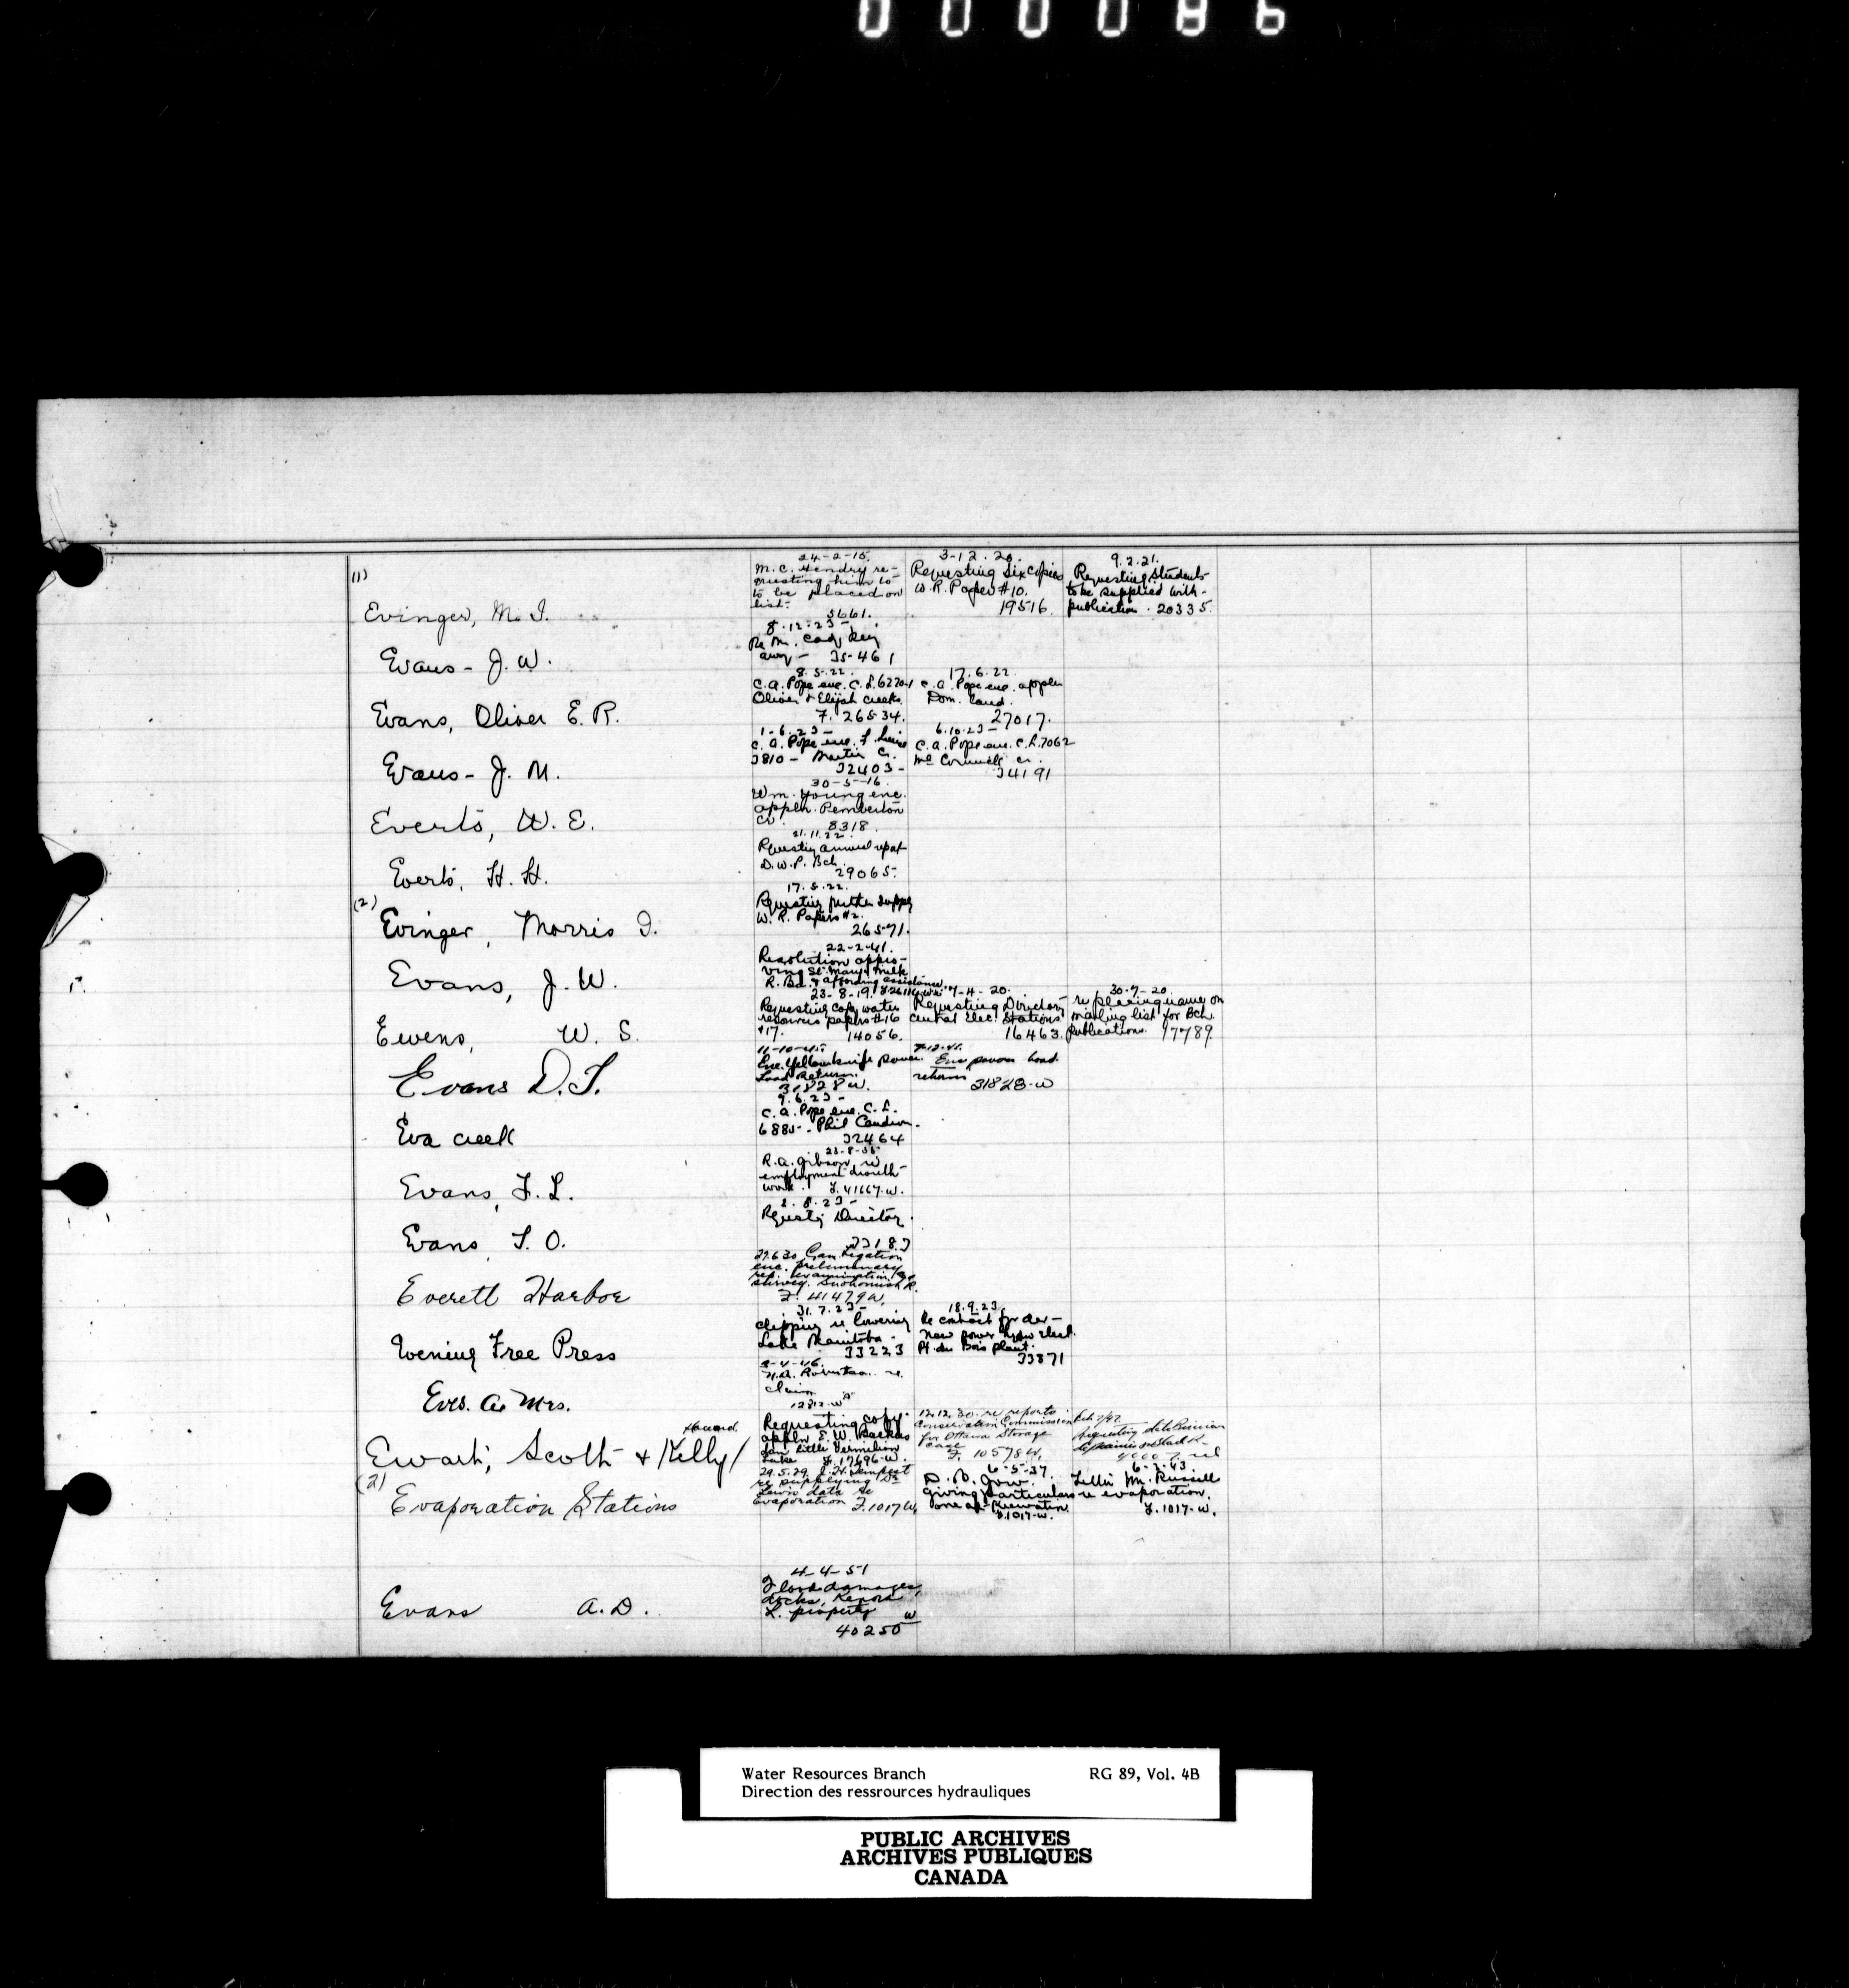 000086
(1)
24-2-15.
M. C. Hendry re-
questing him to
to be placed on
list.
5661.
3-12.20.
Requesting Six Copies
W. R. Paper #10.
19516
9.2.21.
Requesting Students
to be supplied with
publication. 20335.
Evinger, M. I.
8.12.23-
35461
Evans - J. W.
8.5.22.
C. A. Pope enc. C. L. 6270
Oliver & Elijah Creeks
F. 26534.
17.6.22.
C. A. Pope enc. appln
Dom. land.
27017.
Evans, Oliver E. R.
1-6.23-
C. A. Pope enc.
3810 - Martin Cr.
32403-
6.10.23-
C. A. Pope enc. C. L. 7062
McConnell Cr.
34191
Evans - J. M.
30-5-16.
Wm. Young enc.
appln. Pemberton
Cr. 8318.
Everts, W. E.
21.11.22.
Requesting annual report
D. W. P. Bch.
29065.
Everts, H. H.
(2)
17.5.22.
Requesting further supply
W. R. Papers #2.
26571.
Evinger, Morris I.
22-2-41.
Resolution appro-
ving St. Mary & Milk
R. Bd. & affording assistance.
Evans, J. W.
23-8-19.
Requesting Copy water
resources papers #16
#17. 14056.
7-4-20.
Requesting Directory
Central Elec. Stations
16463.
30-7-20.
re placing name on
mailing list for Bch.
Publications. 17789.
Ewens, W. S.
11-10-45
Enc. Yellowknife power
Load Return.
31828 W.
Enc. power load
return
31828-W
Evans D. T.
9.6.23-
C. A. Pope enc. C. L.
6885-. Phil Caudron.
32464
Eva Creek
23-8-35
R. A. Gibson re
employment drouth
work. F. 41667-W.
Evans, F. L.
2.8.23-
Requestg Directory.
33183
Evans, T. O.
27.6.30 Can. Legation
enc. preliminary
rep. examination &
survey. Snohomish R.
F. 41479W.
Everett Harbor
31.7.23-
Clipping re lowering
Lake Manitoba.
33223
18.9.23.
Re contract for
new power
Pt. du Bois plant.
33871
Evening Free Press
9-4-46.
Robertson re
claim
12812-W "A"
Eves. A. Mrs.
Requesting copy
appln E. W. Backus
dam Little Vermilion
Lake F. 17696-W.
12.12.30. re reports
Conservation Commission
for Ottawa Storage
case
F. 10578W.
Howard
Ewart, Scott & Kelly
(2)
29.5.29.
re supplying Dr.
data re
Evaporation F. 1017W.
6-5-37.
giving particulars
one at Keewatin
F. 1017-W.
6-2-43.
Letter Mr. Russell
re evaporation.
F. 1017-W.
Evaporation Stations
4-4-51
Flood damages,
docks, Kenora
L. property
W
40250
Evans A. D.
Water Resources Branch RG 89, Vol. 4B
Direction des ressrources hydrauliques
PUBLIC ARCHIVES
ARCHIVES PUBLIQUES
CANADA